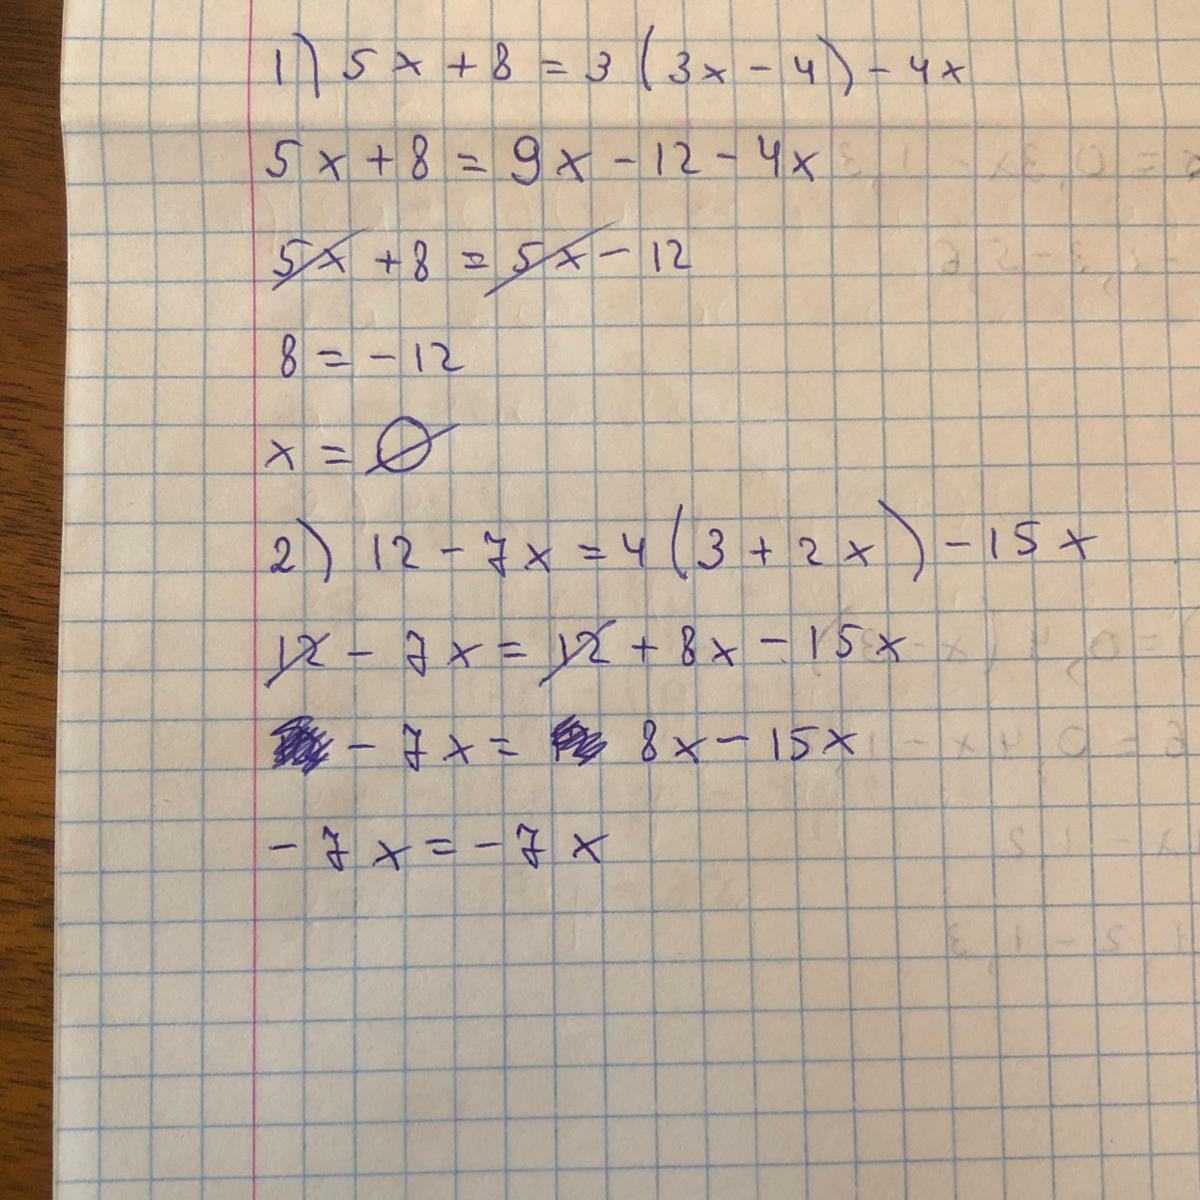 1) 5x + 8 = 3 (3x - 4) - 4x
5x + 8 = 9x - 12 - 4x
5x + 8 = 5x - 12
8 = -12
x = ∅
2) 12 - 7x = 4 (3 + 2x) - 15x
12 - 7x = 12 + 8x - 15x
- 7x = 8x - 15x
- 7x = - 7x